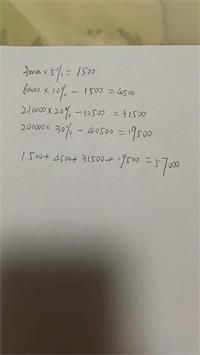 30000×5%=1500
60000×10%-1500=4500
210000×20%-10500=31500
200000×30%-40500=19500
1500+4500+31500+19500=57000